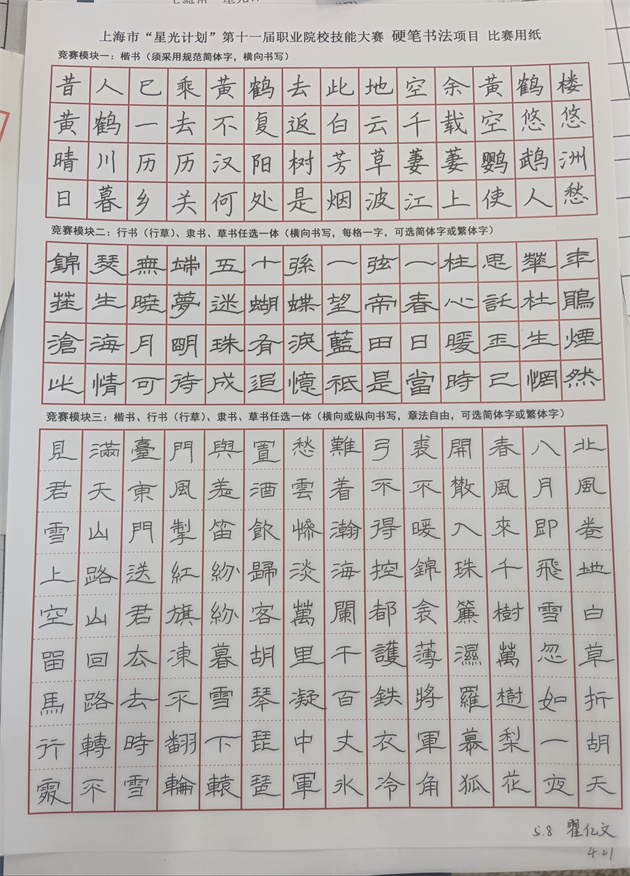 上海市“星光计划”第十一届职业院校技能大赛 硬笔书法项目 比赛用纸
竞赛模块一：楷书（须采用规范简体字，横向书写）
昔人已乘黄鹤去此地空余黄鹤楼
黄鹤一去不复返白云千载空悠悠
晴川历历汉阳树芳草萋萋鹦鹉洲
日暮乡关何处是烟波江上使人愁
竞赛模块二：行书（行草）、隶书、草书任选一体（横向书写，每格一字，可选简体字或繁体字）
錦瑟無端五十孫一弦一柱思華年
莊生曉夢迷蝴蝶望帝春心託杜鵑
滄海月明珠有淚藍田日暖玉生煙
此情可待成追憶祗是當時已惘然
竞赛模块三：楷书、行书（行草）、隶书、草书任选一体（横向或纵向书写，章法自由，可选简体字或繁体字）
北風卷地白草折胡天
八月即飛雪忽如一夜
春風來千樹萬樹梨花
開散入珠簾濕羅幕狐
裘不暖錦衾薄將軍角
弓不得控都護鉄衣冷
難着瀚海闌干百丈氷
愁雲慘淡萬里凝中軍
置酒飲歸客胡琴琵琶
與羌笛紛紛暮雪下轅
門風掣紅旗凍不翻輪
臺東門送君去去時雪
滿天山路山回路轉不
見君雪上空留馬行處
5.8 瞿仁文
4.21